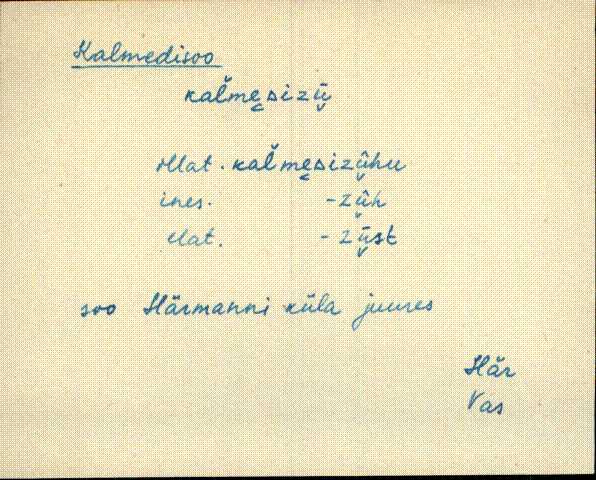 Kalmedisoo
kal̆mẹsizụ̄
illat. kal̆mẹsizụ̂hu
ines. -zụ̂h
elat. -zụ̄st
soo Härmanni küla juures
Här
Vas